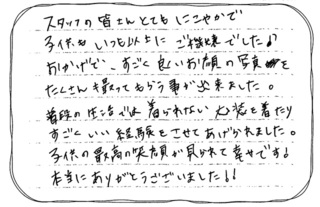 スタッフの皆さんとてもにこやかで
子供もいつも以上にご機嫌でした♪
おかげで、すごく良いお顔の写真を
たくさん撮ってもらう事が出来ました。
普段の生活では着られない衣装を着たり
すごくいい経験をさせてあげれました。
子供の最高の笑顔が見られて幸せです♪
本当にありがとうございました!!